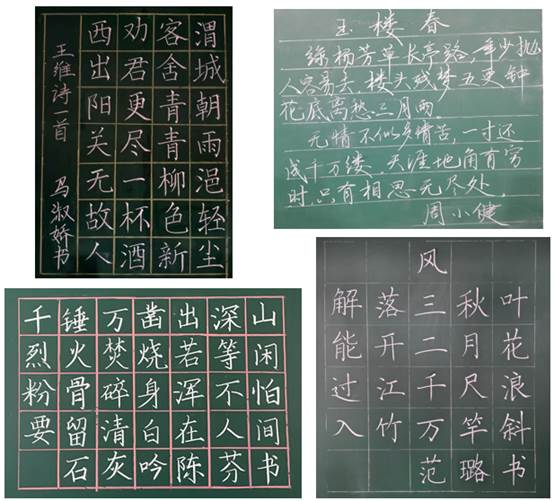 渭城朝雨浥轻尘
客舍青青柳色新
劝君更尽一杯酒
西出阳关无故人
王维诗一首 马淑娇书
玉楼春
绿杨芳草长亭路,年少抛
人容易去.楼头残梦五更钟
花底离愁三月雨.
无情不似多情苦,一寸还
成千万缕.天涯地角有穷
时.只有相思无尽处.
周小健
千锤万凿出深山
烈火焚烧若等闲
粉骨碎身浑不怕
要留清白在人间
石灰吟陈芬书
风
解落三秋叶
能开二月花
过江千尺浪
入竹万竿斜
范璐书